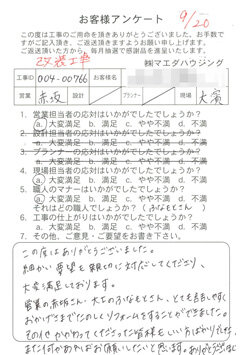 お客様アンケート
9/20
この度は工事のご用命を頂きありがとうございました。お手数で
すがご記入頂き、ご返送頂きますようお願い申し上げます。
ご返送頂いた方から、毎月抽選で感謝品を進呈いたします。
改装工事
㈱マエダハウジング
工事ID 004-00966 お客様名
営業 赤坂 設計 プランナー 現場 大濱
1. 営業担当者の応対はいかがでしたでしょうか？
a. 大変満足 b. 満足 c. やや不満 d. 不満
2. 設計担当者の応対はいかがでしたでしょうか？
a. 大変満足 b. 満足 c. やや不満 d. 不満
3. プランナーの応対はいかがでしたでしょうか？
a. 大変満足 b. 満足 c. やや不満 d. 不満
4. 現場担当者の応対はいかがでしたでしょうか？
a. 大変満足 b. 満足 c. やや不満 d. 不満
5. 職人のマナーはいかがでしたでしょうか？
a. 大変満足 b. 満足 c. やや不満 d. 不満
それはどの職人でしょうか？
6. 工事の仕上がりはいかがでしたでしょうか？
a. 大変満足 b. 満足 c. やや不満 d. 不満
7. その他、ご意見・ご要望をお書き下さい。
この度はありがとうございました。
細かい要望も親切に対応してくださり、
大変満足しております。
営業の赤坂さん、大工のふなもとさん、とても良い方で
おかげさまでたのしくリフォームをすることができました。
その他かかわってくださった皆様もいい方ばかりでした。
また何かあればお願いしたいと思います。